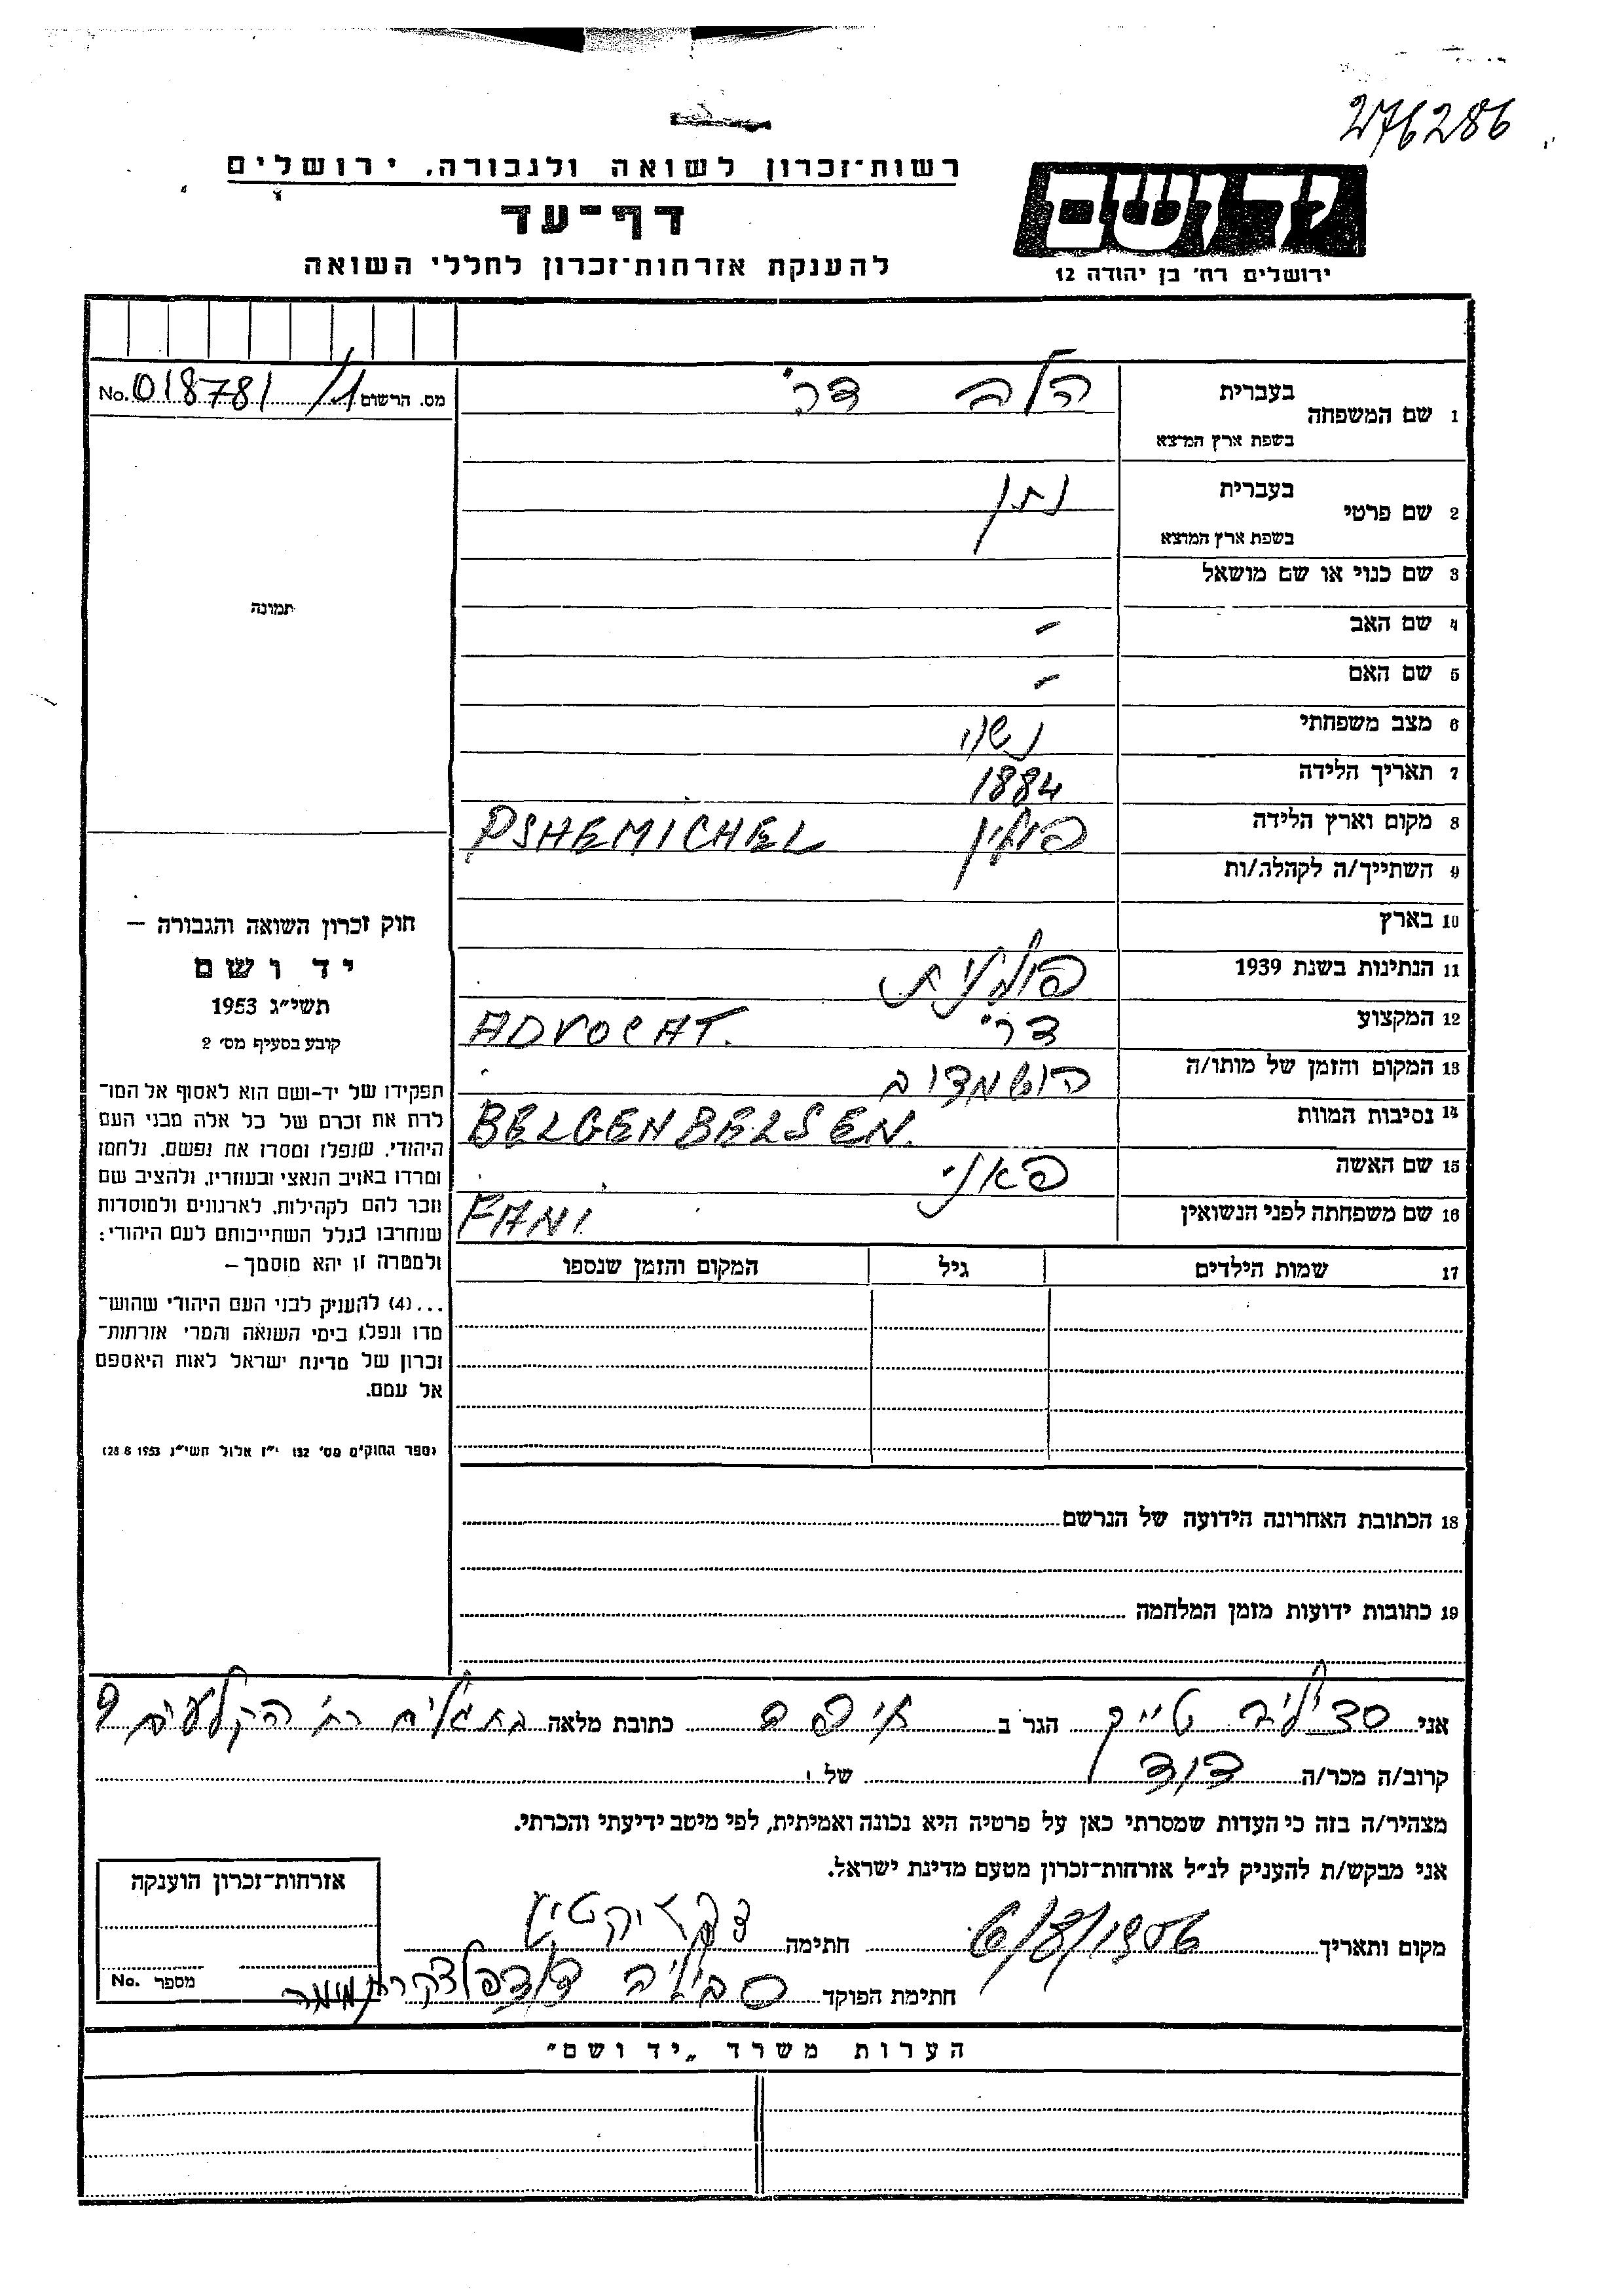 276286
רשות־זכרון לשואה ולגבורה, ירושלים
דף־עד
להענקת אזרחות־זכרון לחללי השואה
יד ושם
ירושלים רח׳ בן יהודה 12
מס. הרשום 018781/1 No.
תמונה
1 שם המשפחה בעברית הלב דר׳
בשפת ארץ המוצא
2 שם פרטי בעברית נתן
בשפת ארץ המוצא
3 שם כנוי או שם מושאל
4 שם האב -
5 שם האם -
6 מצב משפחתי נשוי
7 תאריך הלידה 1884
8 מקום וארץ הלידה פולין PSHEMICHEL
9 השתייך/ה לקהלה/ות
10 בארץ
11 הנתינות בשנת 1939 פולנית
12 המקצוע דר׳ ADVOCAT.
13 המקום והזמן של מותו/ה
14 נסיבות המוות BELGENBELSEN.
15 שם האשה פאני
16 שם משפחתה לפני הנשואין FANI
17 שמות הילדים גיל המקום והזמן שנספו
חוק זכרון השואה והגבורה –
יד ושם
תשי״ג 1953
קובע בסעיף מס׳ 2
תפקידו של יד-ושם הוא לאסוף אל המו־
לדת את זכרם של כל אלה מבני העם
היהודי, שנפלו ומסרו את נפשם, נלחמו
ומרדו באויב הנאצי ובעוזריו, ולהציב שם
וזכר להם לקהילות, לארגונים ולמוסדות
שנחרבו בגלל השתייכותם לעם היהודי:
ולמטרה זו יהא מוסמך –
...(4) להעניק לבני העם היהודי שהוש־
מדו ונפלו בימי השואה והמרי אזרחות־
זכרון של מדינת ישראל לאות היאספם
אל עמם.
(ספר החוקים מס׳ 132 י״ז אלול תשי״ג 28.8.1953)
18 הכתובת האחרונה הידועה של הנרשם
19 כתובות ידועות מזמן המלחמה
אני הגר ב כתובת מלאה 9
קרוב/ה מכר/ה דוד של
מצהיר/ה בזה כי העדות שמסרתי כאן על פרטיה היא נכונה ואמיתית, לפי מיטב ידיעתי והכרתי.
אני מבקש/ת להעניק לנ״ל אזרחות־זכרון מטעם מדינת ישראל.
מקום ותאריך 6/8/1956 חתימה
חתימת הפוקד
אזרחות־זכרון הוענקה
מספר No.
הערות משרד „יד ושם״